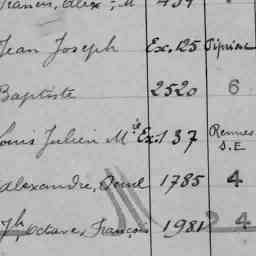 Jean Joseph Ex. 125 Pipriac
Baptiste 2520 6
Louis Julien Mie Ex. 137 Rennes S.E
Alexandre, 1785 4
Jh, Octave, François 1981 4